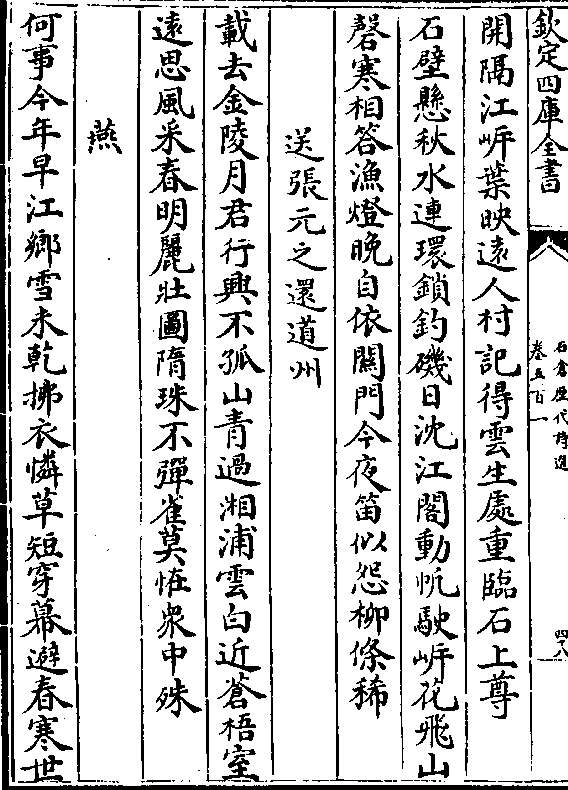 欽定四庫全書
石倉歷代詩選
卷五百一
四十八
開隔江㟁葉映遠人村記得雲生處重臨石上尊
石壁懸秋水連環鎖釣磯日沈江閣動帆駛㟁花飛山
磬寒相答漁燈晚自依關門今夜笛似怨柳條稀
送張元之還道州
載去金陵月君行興不孤山青過湘浦雲白近蒼梧室
遠思風采春明麗壯圖隋珠不彈雀莫恠衆中殊
燕
何事今年早江鄉雪未乾拂衣憐草短穿幕避春寒世